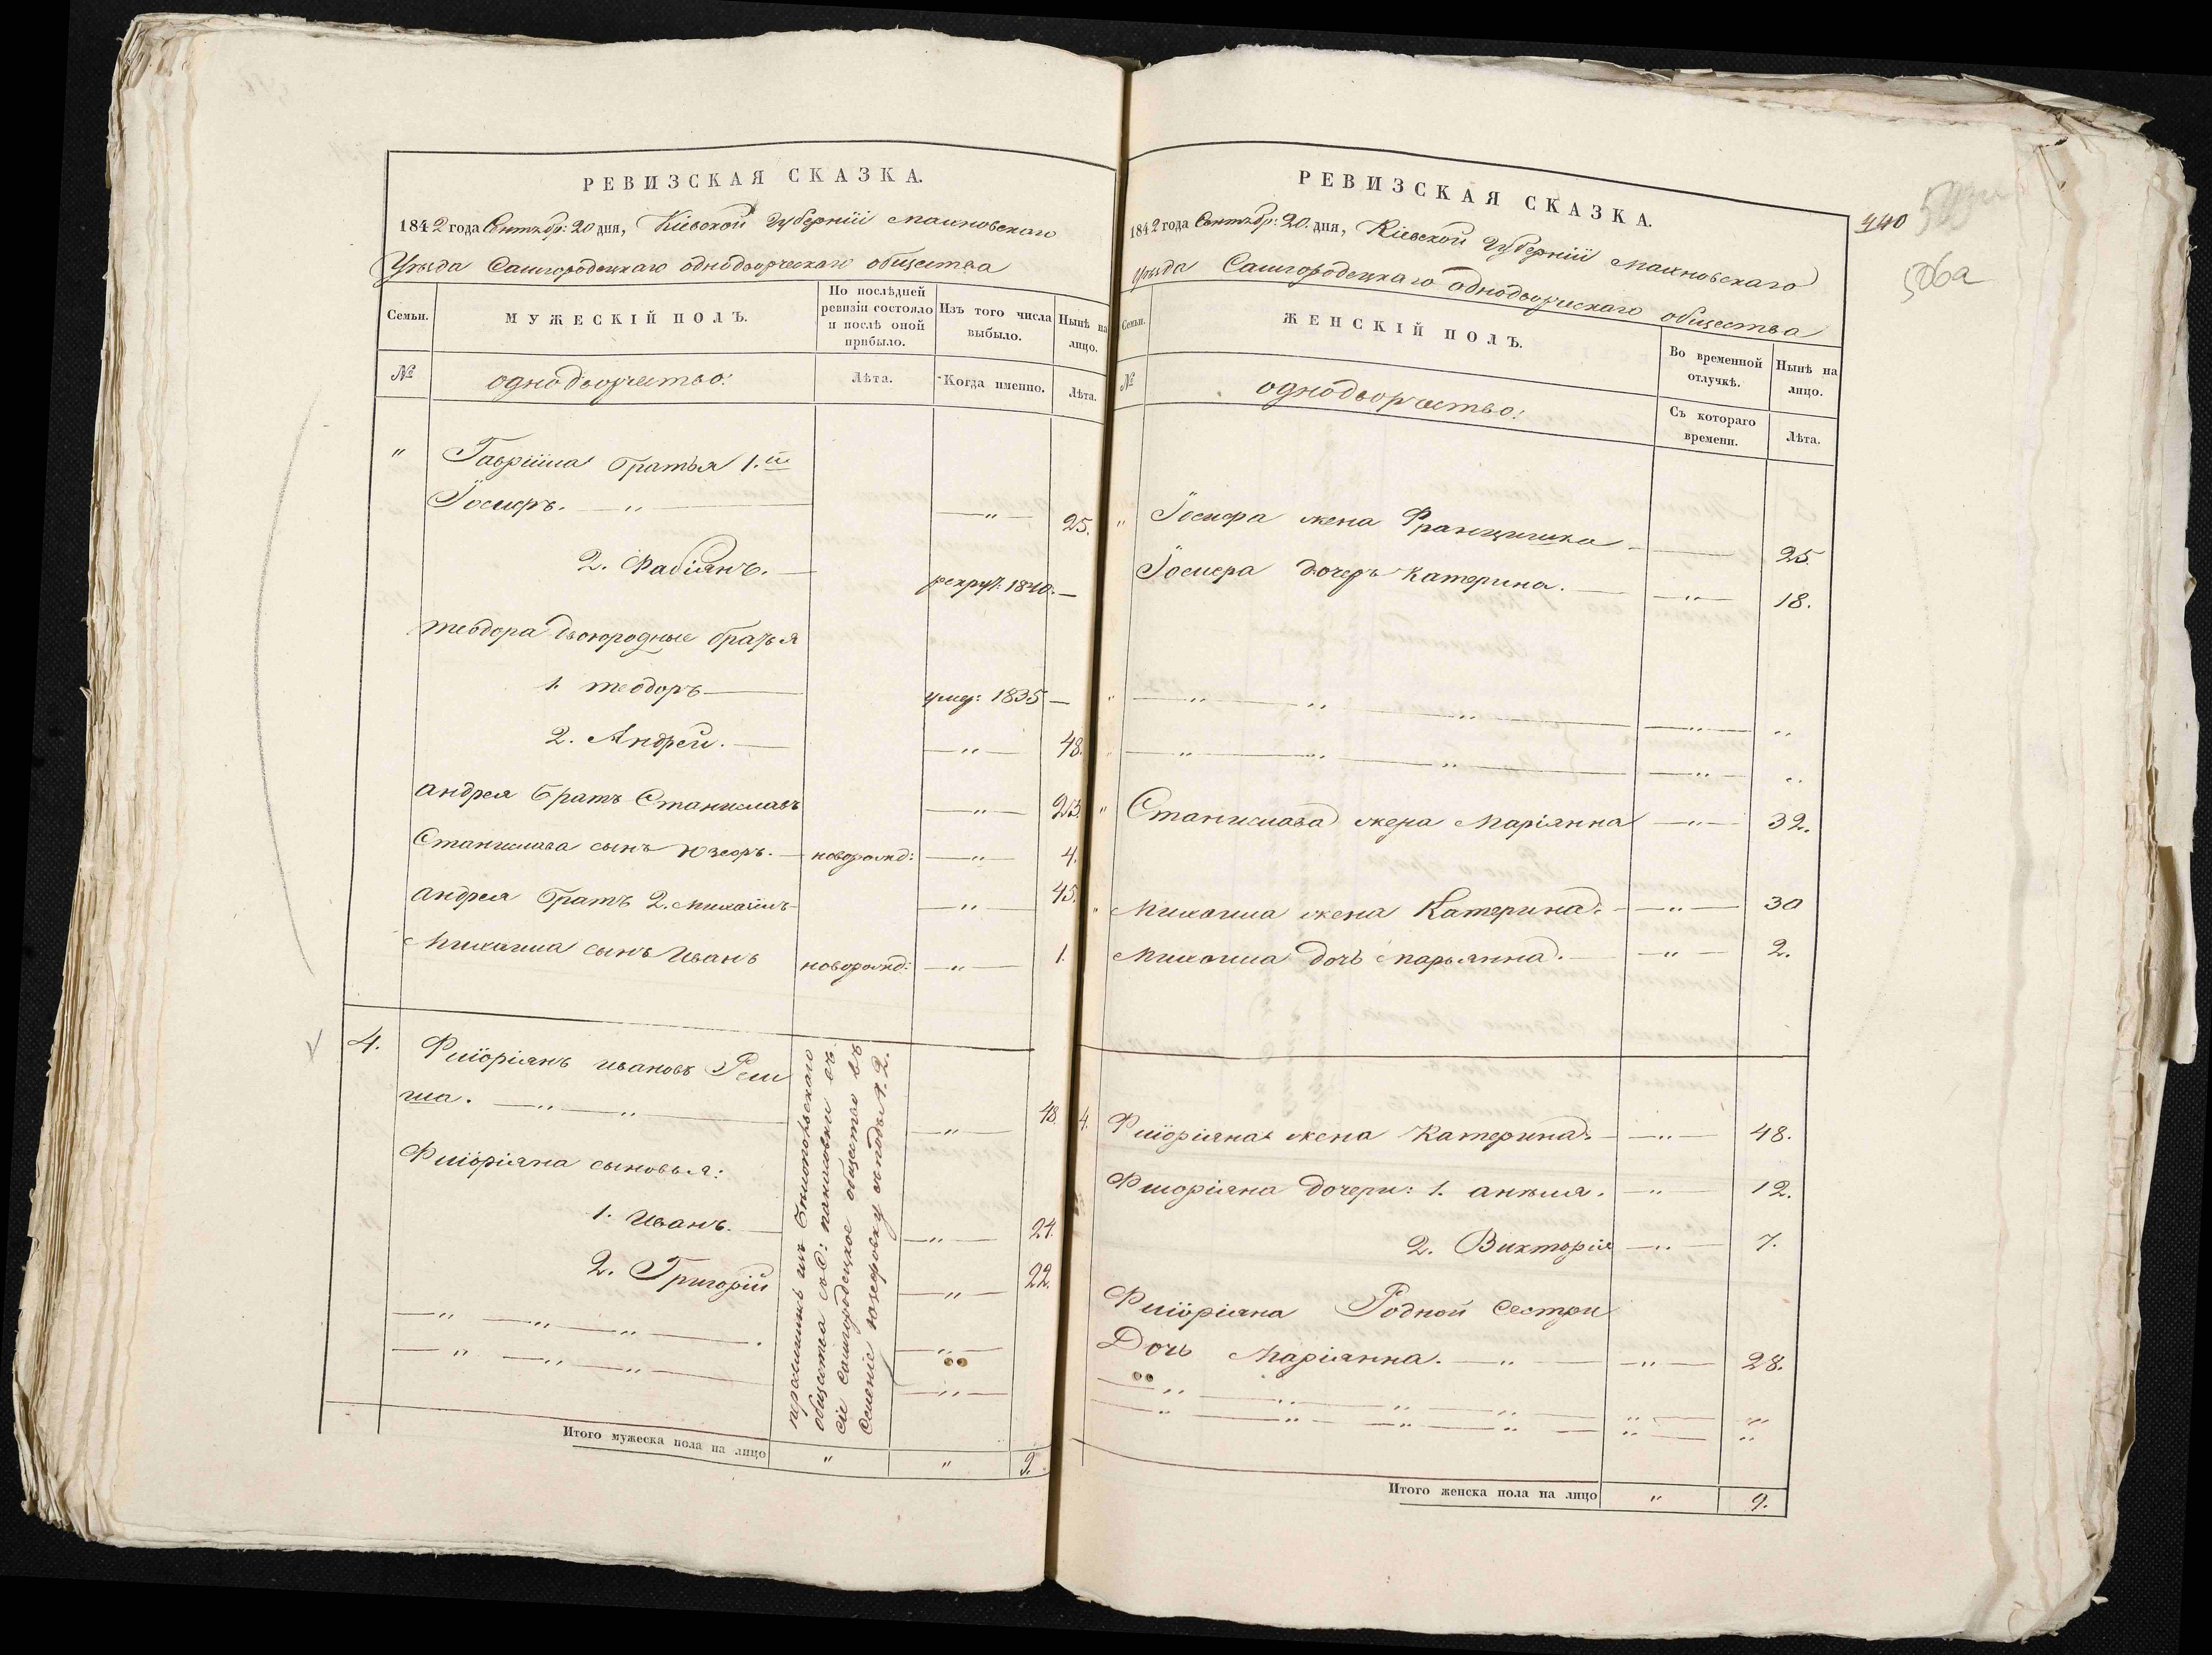 РЕВИЗСКАЯ СКАЗКА.
1842 года Сентябр: 20 дня, Кіевской Губерніи Махновскаго
Уѣзда Самгородецкаго однодворческаго общества
Семьи.
МУЖЕСКІЙ ПОЛЪ.
По послѣдней ревизіи состояло и послѣ оной прибыло.
Изъ того числа выбыло.
Нынѣ на лицо.
№
однодворчество:
Лѣта.
Когда именно.
Лѣта.
" Гавріила братья 1.й
Іосифъ. — " — — " — 25.
2. Фабіянъ. — рекрут: 1840. —
Теодора двоюродные братья
1. Теодоръ — умер: 1835 —
2. Андрей. — — " — 48.
Андрея братъ Станиславъ — " — 23.
Станислава сынъ Юзефъ. — новорожд: — " — 4.
Андрея братъ 2. Михаилъ — — " — 45.
Михаила сынъ Иванъ новорожд: — " — 1.
4. Флоріянъ Ивановъ
— " — " — — " — 48.
Флоріяна сыновья:
1. Иванъ. — — " — 24.
2. Григорій — " — 22.
— " — " — " — . — " —
— " — " — " — — " —
общества
сіе Самгородецкое общество въ
селеніе Юзефовку
Итого мужеска пола на лицо " " 9.
РЕВИЗСКАЯ СКАЗКА.
1842 года Сентябр: 20. дня, Кіевской Губерніи Махновскаго
Уѣзда Самгородецкаго однодворческаго общества
440
506а
Семьи.
ЖЕНСКІЙ ПОЛЪ.
Во временной отлучкѣ.
Нынѣ на лицо.
№
однодворчество:
Съ котораго времени.
Лѣта.
" Іосифа жена Францишка — — 25.
Іосифа дочеръ Катерина. — — " — 18.
" — " — " — " — — " — "
" — " — " — " — — " — "
" Станислава жена Маріянна — " — 32.
" Михаила жена Катерина. — — " — 30
Михаила дочь Марьянна. — — " — 2.
4. Флоріяна жена Катерина. — — " — 48.
Флоріяна дочери: 1. — " — 12.
2. Викторія — " — 7.
Флоріяна Родной Сестри
Дочь Маріянна. — " — — " — 28.
— " — " — " — " — — " — "
— " — " — " — " — — " — "
Итого женска пола на лицо " 9.